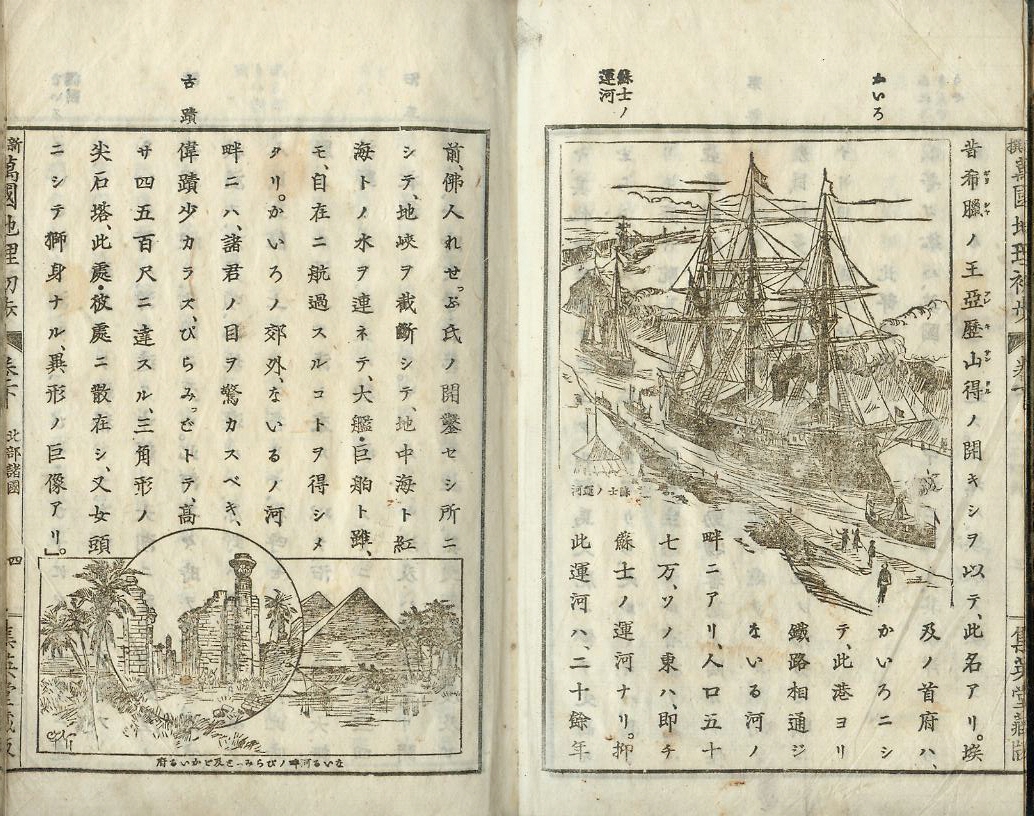 かいろ
蘇士ノ
運河
昔希臘ノ王亞歷山得ノ開キシヲ以テ、此名アリ。埃
及ノ首府ハ、
かいろニシ
テ、此港ヨリ
鐵路相通ジ
ないる河ノ
畔ニアリ、人口五十
七万、ソノ東ハ、即チ
蘇士ノ運河ナリ。抑
此運河ハ、二十餘年
蘇士ノ運河
古蹟
前、佛人れせっぷ氏ノ開鑿セシ所ニ
シテ、地峽ヲ截斷シテ、地中海ト紅
海トノ水ヲ連ネテ、大艦・巨舶ト雖、
モ、自在ニ航過スルコトヲ得シメ
タリ。かいろノ郊外、ないるノ河
畔ニハ、諸君ノ目ヲ驚カスベキ、
偉蹟少カラズ、ぴらみっどトテ、高
サ四五百尺ニ達スル、三角形ノ
尖石塔、此處・彼處ニ散在シ、又女頭
ニシテ獅身ナル、異形ノ巨像アリ」。
ないる河畔ノぴらみっど及かいろ府
萬國地理初歩
北部諸國
四
集英堂藏版